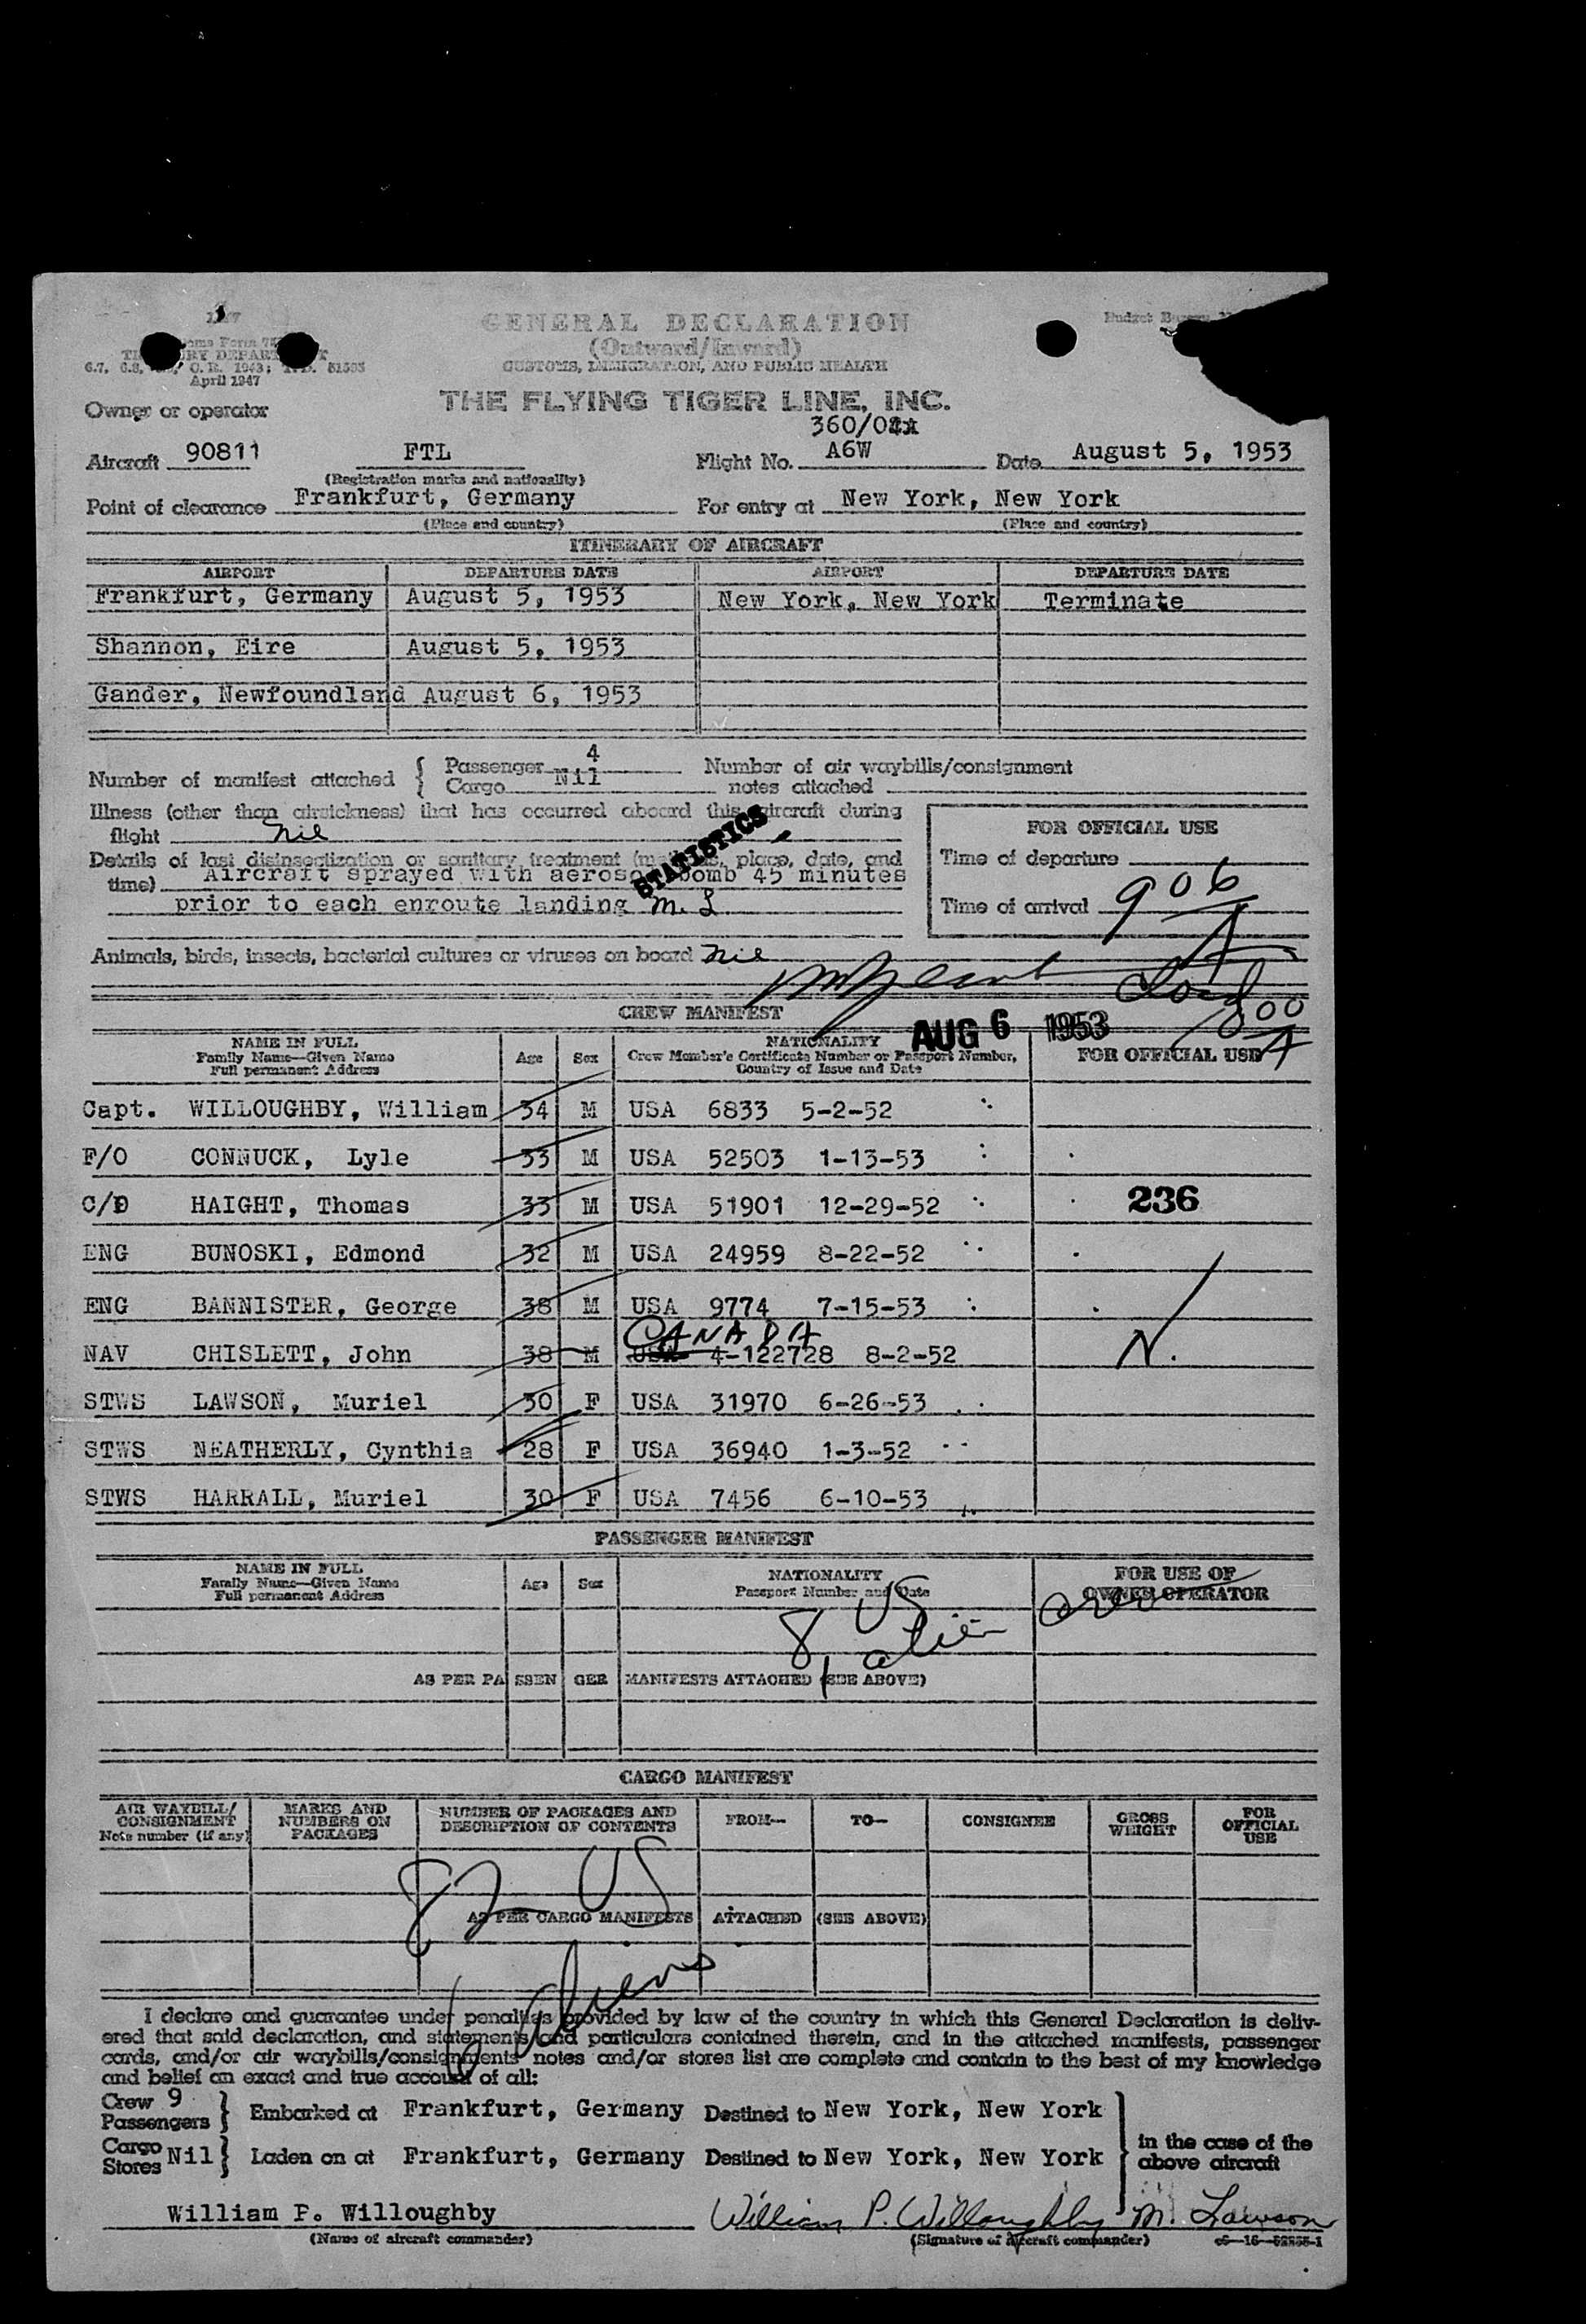 GENERAL DECLARATION
(Outward/Inward)
CUSTOMS, IMMIGRATION, AND PUBLIC HEALTH
April 1947
THE FLYING TIGER LINE, INC.
Owner or operator
360/02
Aircraft 90811 FTL Flight No. A6W Date August 5, 1953
(Registration marks and nationality)
Point of clearance Frankfurt, Germany For entry at New York, New York
(Place and country) (Place and country)
ITINERARY OF AIRCRAFT
AIRPORT DEPARTURE DATE AIRPORT DEPARTURE DATE
Frankfurt, Germany August 5, 1953 New York, New York Terminate
Shannon, Eire August 5, 1953
Gander, Newfoundland August 6, 1953
Number of manifest attached { Passenger 4 Number of air waybills/consignment
Cargo Nil notes attached
Illness (other than airsickness) that has occurred aboard this aircraft during
flight Nil
FOR OFFICIAL USE
STATISTICS
Details of last disinsectization or sanitary treatment (methods, place, date, and
time) Aircraft sprayed with aerosol bomb 45 minutes
prior to each enroute landing M. L
Time of departure
Time of arrival 906 A
Animals, birds, insects, bacterial cultures or viruses on board Nil
800 A
CREW MANIFEST
AUG 6 1953
NAME IN FULL Age Sex NATIONALITY FOR OFFICIAL USE
Family Name—Given Name Crew Member's Certificate Number or Passport Number,
Full permanent Address Country of Issue and Date
Capt. WILLOUGHBY, William 34 M USA 6833 5-2-52
F/O CONNUCK, Lyle 33 M USA 52503 1-13-53
C/P HAIGHT, Thomas 33 M USA 51901 12-29-52 236
ENG BUNOSKI, Edmond 32 M USA 24959 8-22-52
ENG BANNISTER, George 38 M USA 9774 7-15-53
CANADA
NAV CHISLETT, John 38 M USA 4-122728 8-2-52 N.
STWS LAWSON, Muriel 30 F USA 31970 6-26-53
STWS NEATHERLY, Cynthia 28 F USA 36940 1-3-52
STWS HARRALL, Muriel 30 F USA 7456 6-10-53
PASSENGER MANIFEST
NAME IN FULL Age Sex NATIONALITY FOR USE OF
Family Name—Given Name Passport Number and Date OWNER OPERATOR
Full permanent Address
8 US crew
1 alien
AS PER PASSENGER MANIFESTS ATTACHED (SEE ABOVE)
CARGO MANIFEST
AIR WAYBILL/ CONSIGNMENT Note number (if any) MARKS AND NUMBERS ON PACKAGES NUMBER OF PACKAGES AND DESCRIPTION OF CONTENTS FROM— TO— CONSIGNEE GROSS WEIGHT FOR OFFICIAL USE
82 US
AS PER CARGO MANIFESTS ATTACHED (SEE ABOVE)
aliens
I declare and guarantee under penalties provided by law of the country in which this General Declaration is deliv-
ered that said declaration, and statements and particulars contained therein, and in the attached manifests, passenger
cards, and/or air waybills/consignments notes and/or stores list are complete and contain to the best of my knowledge
and belief an exact and true account of all:
Crew 9
Passengers } Embarked at Frankfurt, Germany Destined to New York, New York
Cargo
Stores Nil } Laden on at Frankfurt, Germany Destined to New York, New York
in the case of the
above aircraft
William P. Willoughby William P. Willoughby M. Lawson
(Name of aircraft commander) (Signature of aircraft commander)